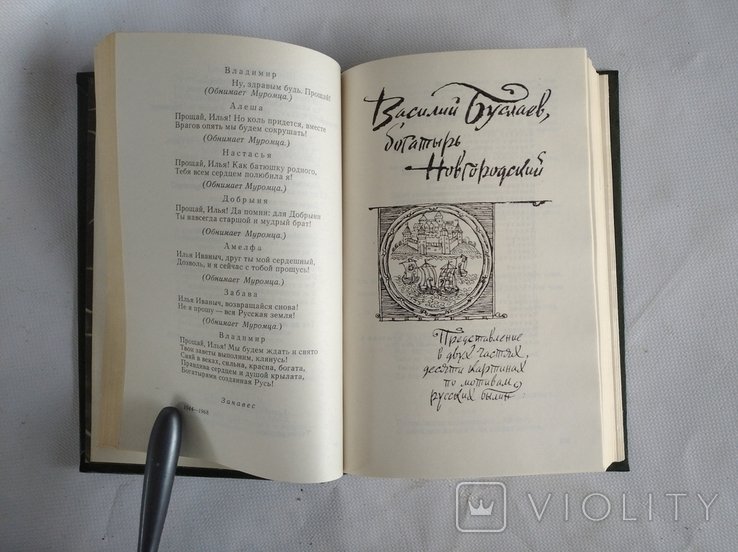 Владимир
Ну, здравым будь. Прощай!
(Обнимает Муромца.)
Алеша
Прощай, Илья! Но коль придется, вместе
Врагов опять мы будем сокрушать!
(Обнимает Муромца.)
Настасья
Прощай, Илья! Как батюшку родного,
Тебя всем сердцем полюбила я!
(Обнимает Муромца.)
Добрыня
Прощай, Илья! Да помни: для Добрыни
Ты навсегда старшой и мудрый брат!
(Обнимает Муромца.)
Амелфа
Илья Иваныч, друг ты мой сердешный,
Дозволь, и я сейчас с тобой прощусь!
(Обнимает Муромца.)
Забава
Илья Иваныч, возвращайся снова!
Не я прошу — вся Русская земля!
(Обнимает Муромца.)
Владимир
Прощай, Илья! Мы будем ждать и свято
Твои заветы выполним, клянусь!
Сияй в веках, сильна, красна, богата,
Правдива сердцем и душой крылата,
Богатырями созданная Русь!
Занавес
1944—1968
Василий Буслаев,
богатырь
Новгородский
Представление
в двух частях,
десяти картинах
по мотивам
русских былин
VIOLITY